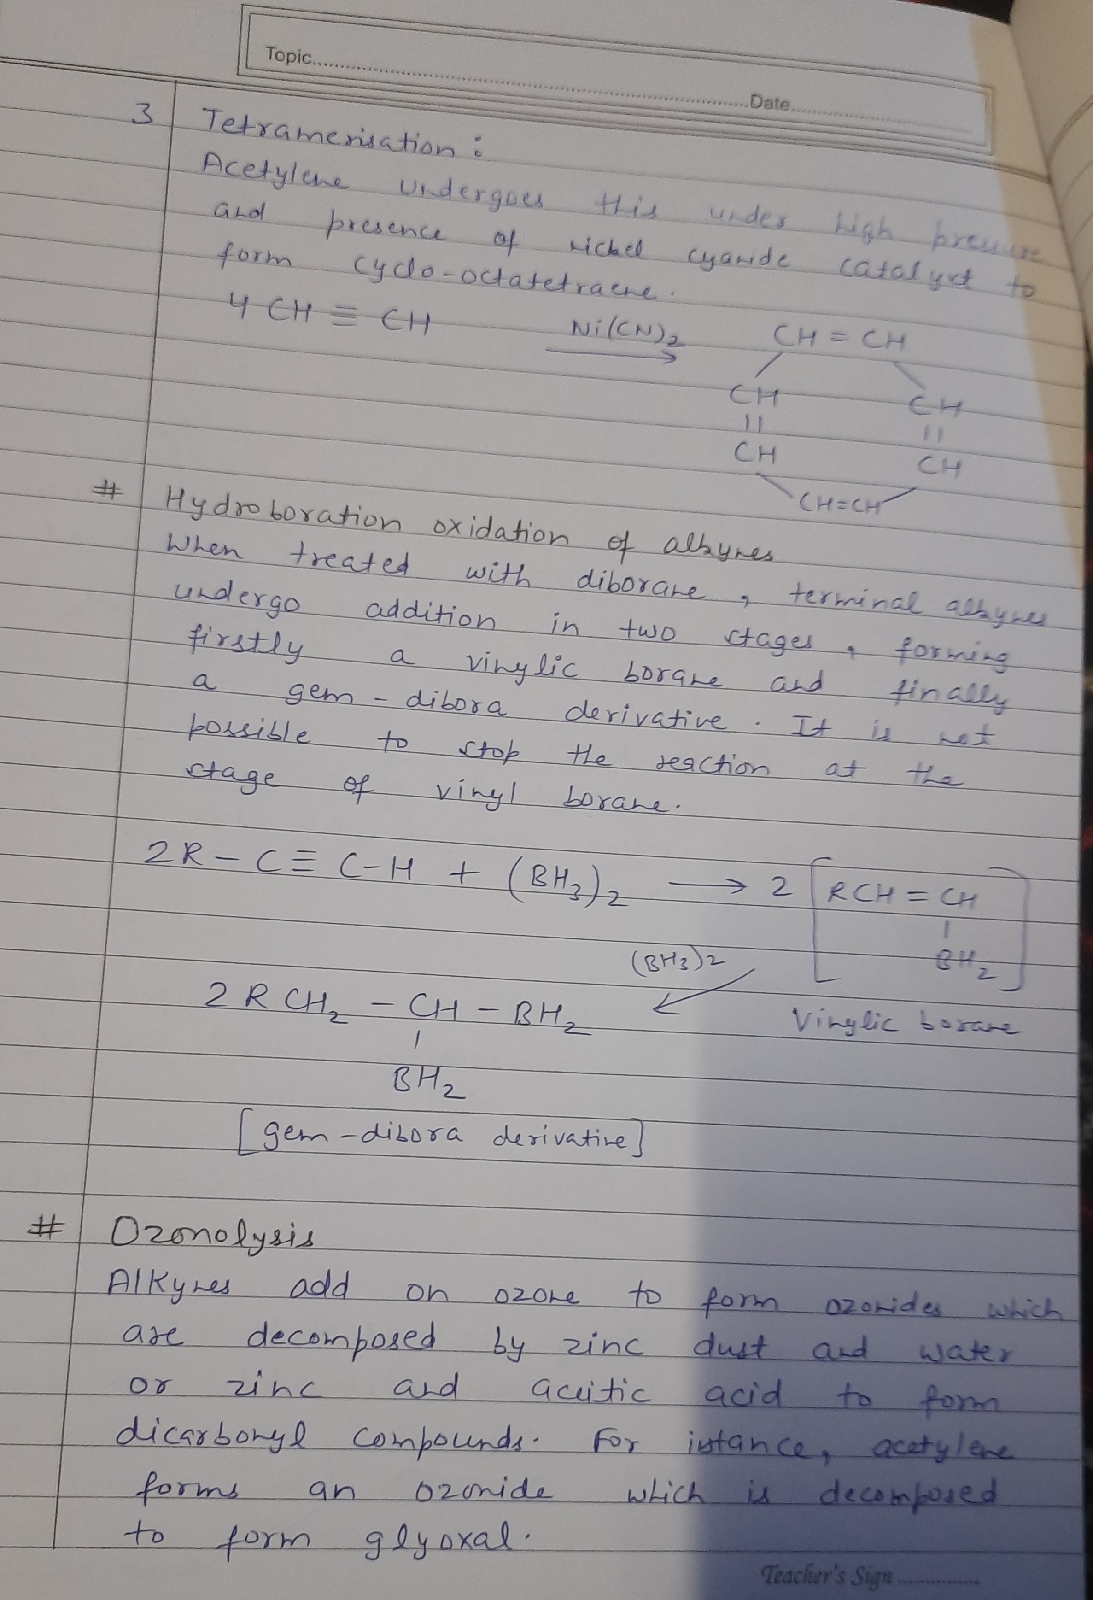 Topic
Date
3 Tetramerisation :
Acetylene undergoes this under high pressure
and presence of nickel cyanide catalyst to
form cyclo-octatetraene.
4 CH ≡ CH Ni(CN)2 → CH = CH
CH CH
|| ||
CH CH
CH=CH
# Hydroboration oxidation of alkynes
When treated with diborane, terminal alkynes
undergo addition in two stages, forming
firstly a vinylic borane and finally
a gem - dibora derivative. It is not
possible to stop the reaction at the
stage of vinyl borane.
2R – C ≡ C–H + (BH3)2 → 2 [RCH = CH
|
BH2]
(BH3)2
Vinylic borane
2 RCH2 – CH – BH2
|
BH2
[gem-dibora derivative]
# Ozonolysis
Alkynes add on ozone to form ozonides which
are decomposed by zinc dust and water
or zinc and aceitic acid to form
dicarbonyl compounds. For istance, acetylene
forms an ozonide which is decomposed
to form glyoxal.
Teacher's Sign